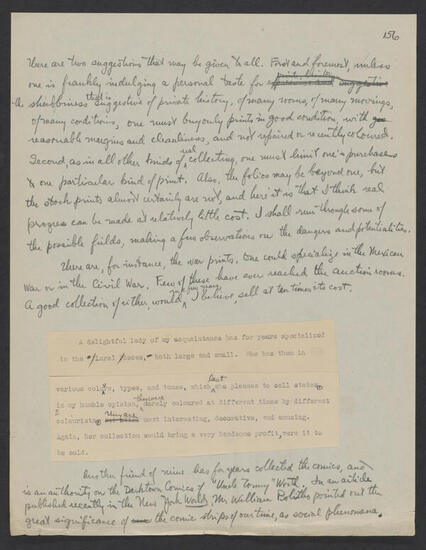 156
There are two suggestions that may be given to all. First and foremost, unless
one is frankly indulging a personal taste for
the shabbiness that is suggestive of private history, of many rooms, of many movings,
of many conditions, one must buy only prints in good condition, with
reasonable margins and cleanliness, and not repaired or recently coloured.
Second, as in all other kinds of real collecting, one must limit one's purchases
to one particular kind of print. Also, the folios may be beyond one, but
the stock prints almost certainly are not, and here it is that I think real
progress can be made at relatively little cost. I shall run through some of
the possible fields, making a few observations on the dangers and potentialities.
There are, for instance, the war prints. One could specialize in the Mexican
War or in the Civil War. Few of these have ever reached the auction rooms.
A good collection of either, would, I believe, sell at ten times its cost.
A delightful lady of my acquaintance has for years specialized
in the Rural Scenes, - both large and small. She has them in
various colors, types, and tones, which she pleases to call states
in my humble opinion, they were merely coloured at different times by different
colourists. They are most interesting, decorative, and amusing.
Again, her collection would bring a very handsome profit, were it to
be sold.
Another friend of mine has for years collected the comics, and
is an authority on the Darktown Comics of "Uncle Tommy" Worth. In an article
published recently in the New York World, Mr. William pointed out the
great significance of the comic strips of our time, as social phenomena.